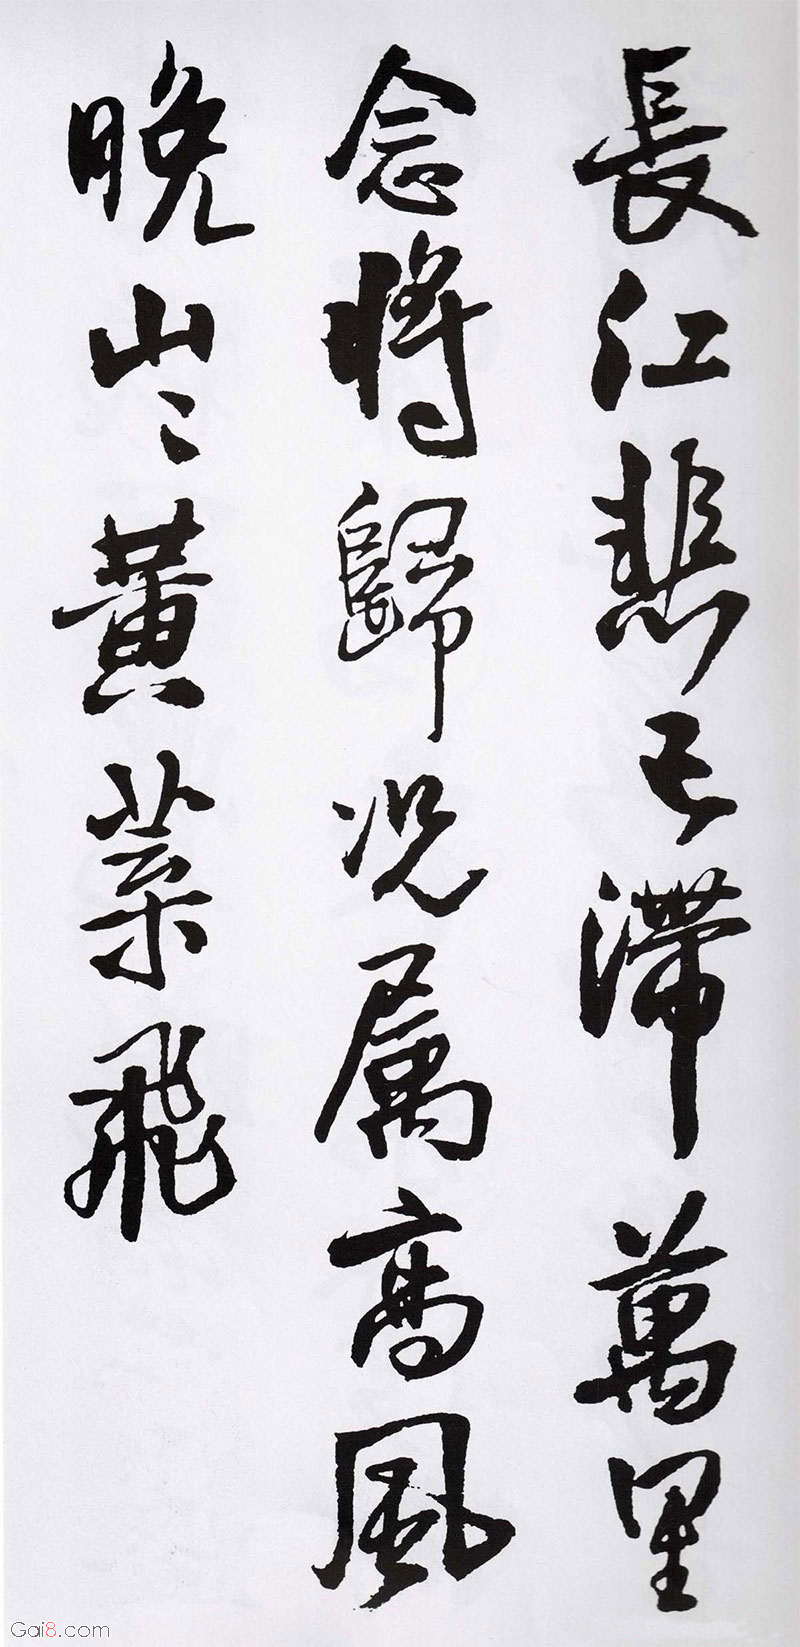 長江悲已滯萬里
念將歸况属高風
晚山〻黃葉飛
Gai8.com